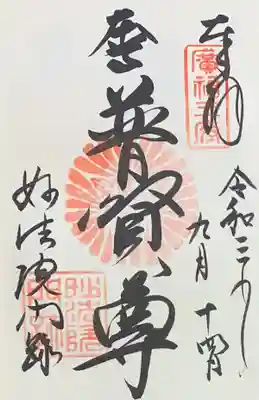 奉拝
令和三年
九月十四日
普賢尊
妙法院門跡
妙法院